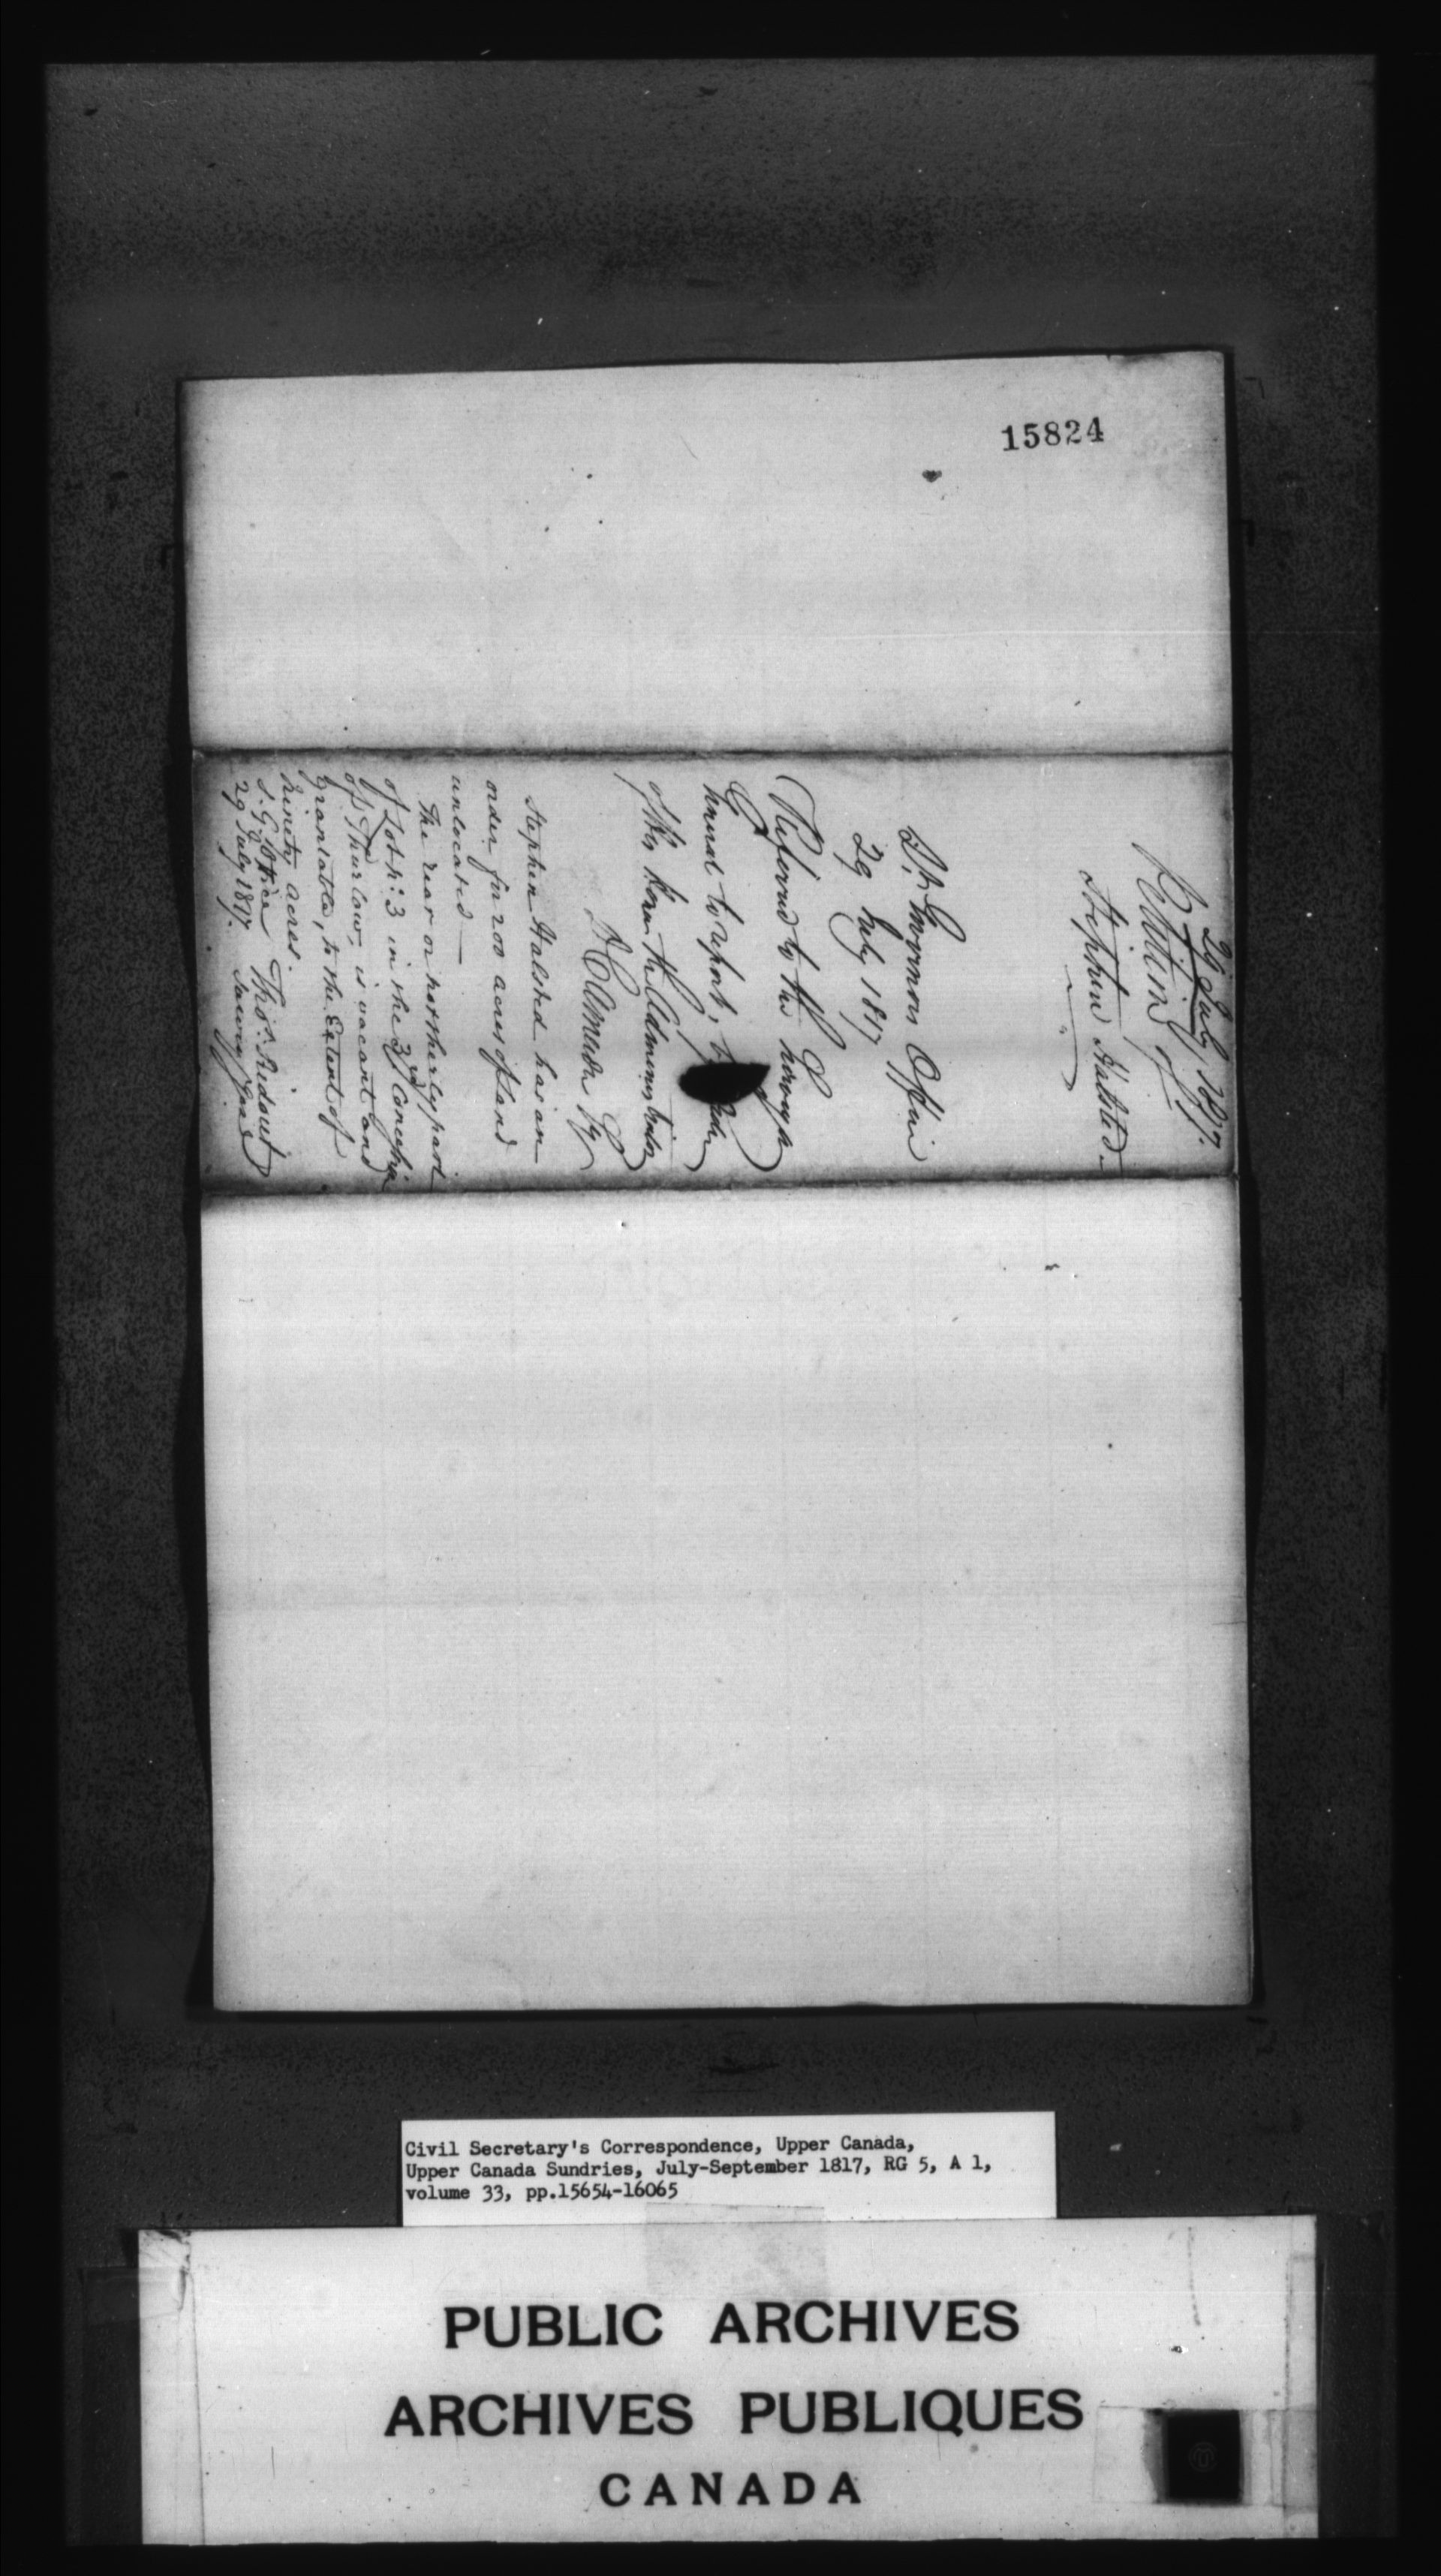 15824
29 July 1817.
Petition of
Stephen Halsted
Lt. Governors Office
29 July 1817
Referred to the Surveyor
General to report, by order
of His Honor the Administrator
Stephen Halsted has an
order for 200 acres of land
unlocated —
The rear or northerly part
of Lot No. 3 in the 3rd Concession
of Thurlow, is vacant and
grantable, to the Extent of
ninety acres.
S. G. Office Thos. Ridout
29 July 1817. Survey Genl
Civil Secretary's Correspondence, Upper Canada,
Upper Canada Sundries, July-September 1817, RG 5, A 1,
volume 33, pp.15654-16065
PUBLIC ARCHIVES
ARCHIVES PUBLIQUES
CANADA